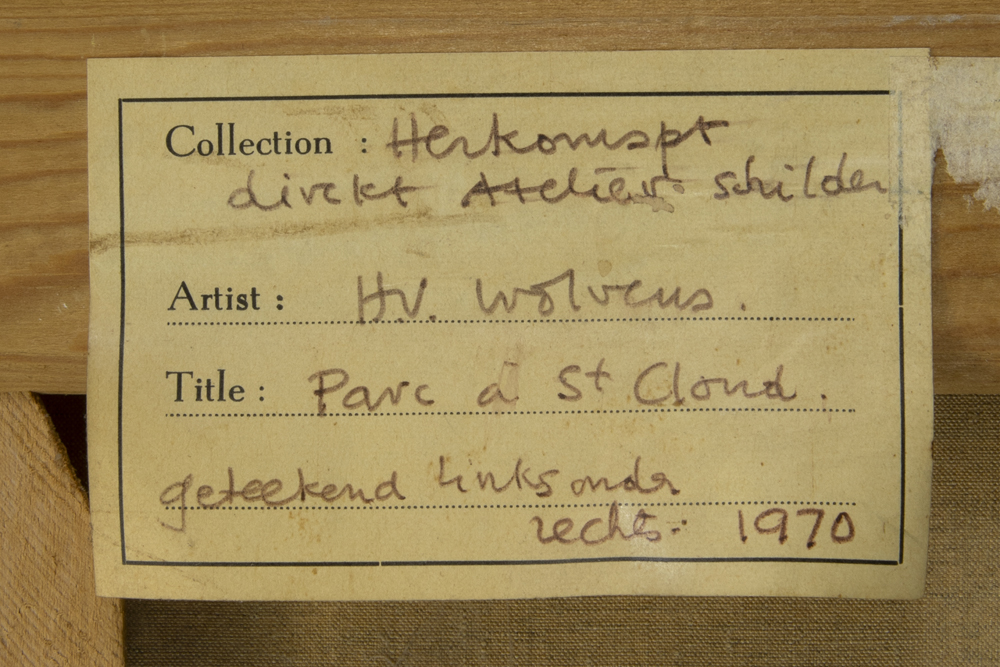 Collection : Herkomspt
direkt Atelier schilder
Artist : H.V. Wolvens.
Title : Parc à St Cloud.
geteekend linksonder
rechts: 1970